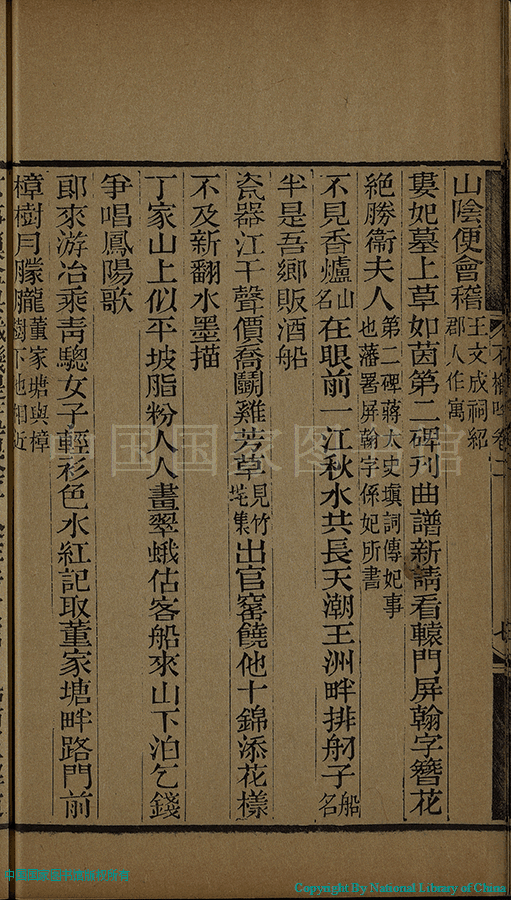 山陰便會稽王文成祠紹郡人作寓
婁妃墓上草如茵第二碑刊曲譜新請看轅門屏翰字簪花
絶勝衞夫人第二碑蔣太史塡詞傳妃事也藩署屏翰字係妃所書
不見香爐山名在眼前一江秋水共長天潮王洲畔排舸子船名
半是吾鄉販酒船
瓷器江干聲價喬鬭雞芳草見竹垞集出官窰饒他十錦添花樣
不及新翻水墨描
丁家山上似平坡脂粉人人畫翠蛾估客船來山下泊乞錢
爭唱鳳陽歌
郎來游冶乘靑驄女子輕衫色水紅記取董家塘畔路門前
樟樹月朦朧董家塘與樟樹下地相近
中国国家图书馆
Copyright By National Library of China